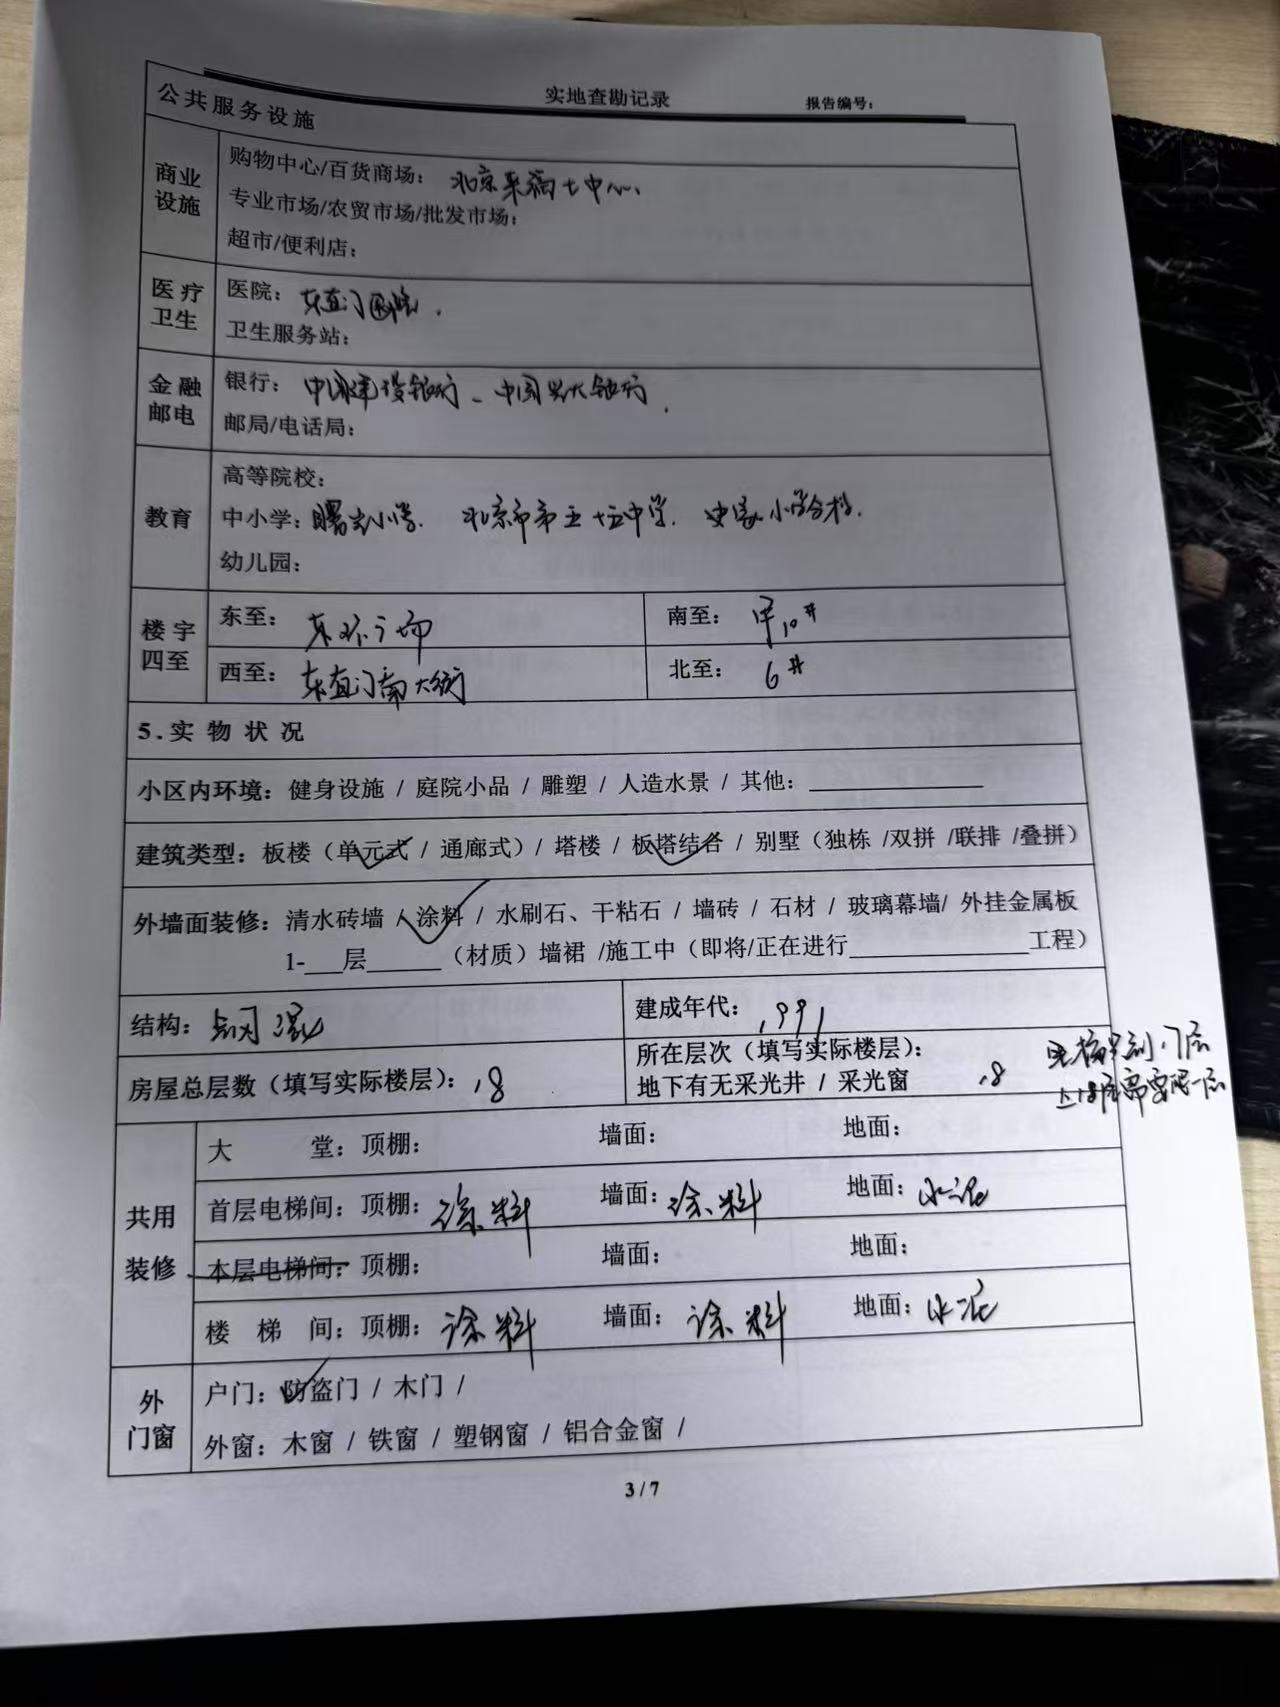 实地查勘记录 报告编号：
公共服务设施
商业设施
购物中心/百货商场： 北京来福士中心、
专业市场/农贸市场/批发市场：
超市/便利店：
医疗卫生
医院： 东直门医院.
卫生服务站：
金融邮电
银行： 中国建设银行、中国光大银行.
邮局/电话局：
教育
高等院校：
中小学： 曙光小学. 北京市第五十五中学. 史家小学分校.
幼儿园：
楼宇四至
东至： 东环广场 南至： 甲10#
西至： 东直门南大街 北至： 6#
5.实物状况
小区内环境：健身设施 / 庭院小品 / 雕塑 / 人造水景 / 其他：
建筑类型：板楼（单元式 / 通廊式）/ 塔楼 / 板塔结合 / 别墅（独栋 /双拼 /联排 /叠拼）
外墙面装修：清水砖墙 / 涂料 / 水刷石、干粘石 / 墙砖 / 石材 / 玻璃幕墙/ 外挂金属板
1-___层______（材质）墙裙 /施工中（即将/正在进行______________工程）
结构： 钢混 建成年代： 1991
房屋总层数（填写实际楼层）： 18 所在层次（填写实际楼层）：
地下有无采光井 / 采光窗 18
电梯只到17层
上18层需要爬一层
共用装修
大 堂：顶棚： 墙面： 地面：
首层电梯间：顶棚： 涂料 墙面： 涂料 地面： 水泥
本层电梯间：顶棚： 墙面： 地面：
楼 梯 间：顶棚： 涂料 墙面： 涂料 地面： 水泥
外门窗
户门：防盗门 / 木门 /
外窗：木窗 / 铁窗 / 塑钢窗 / 铝合金窗 /
3 / 7